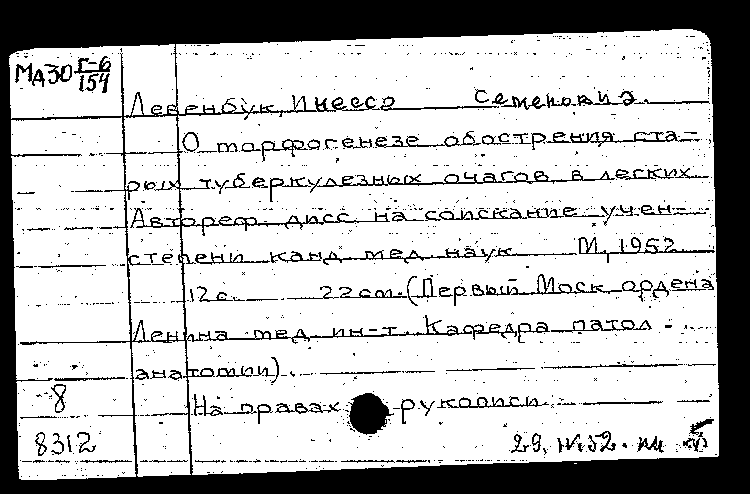 МА30 Г-6/154
Левенбук, Инесса Семеновна.
О морфогенезе обострения ста-
рых туберкулезных очагов в легких
Автореф. дисс. на соискание учен.
степени канд. мед. наук М, 1952
12 с. 22 см. (Первый Моск. ордена
Ленина мед. ин-т. Кафедра патол.
анатомии).
8 На правах рукописи
8312 29.